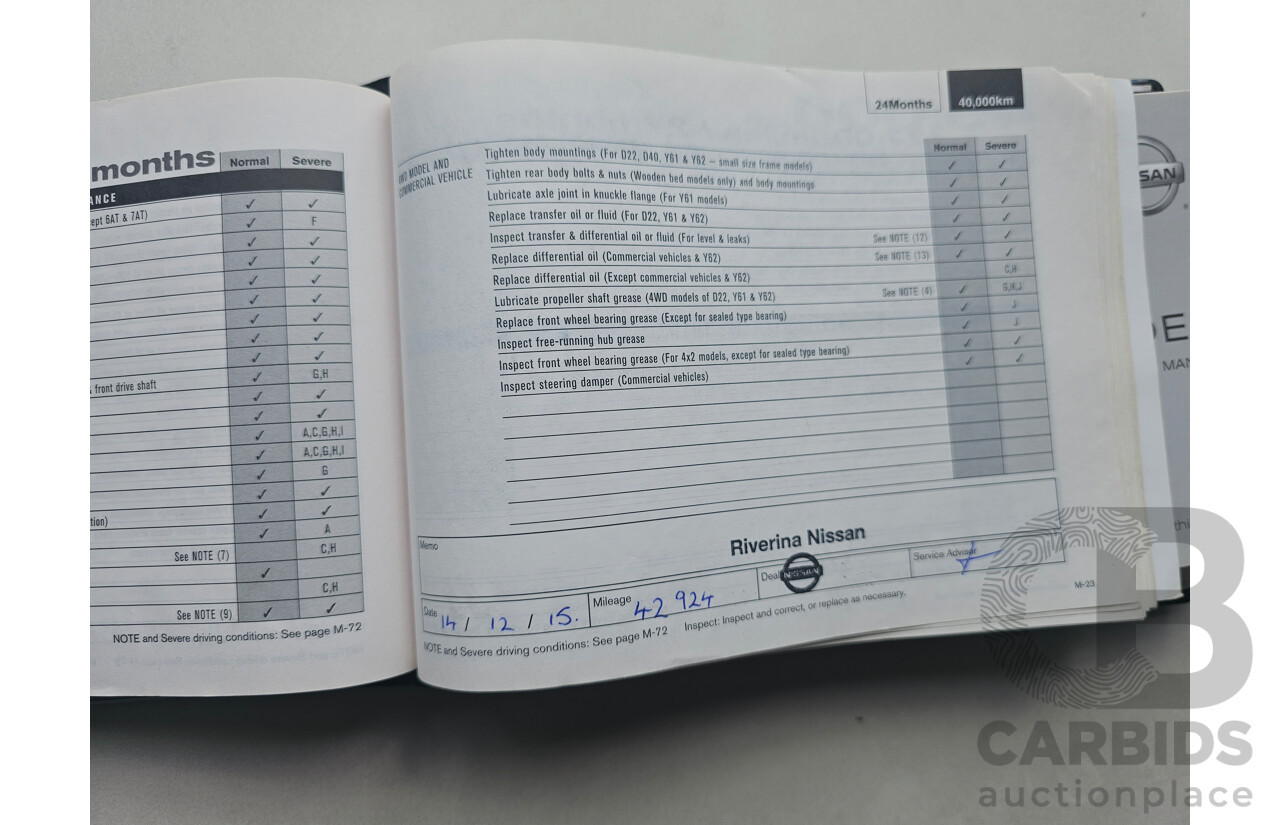 months Normal Severe
ANCE
ept 6AT & 7AT) ✓ ✓
✓ F
✓ ✓
✓ ✓
✓ ✓
✓ ✓
✓ ✓
✓ ✓
✓ ✓
front drive shaft ✓ G,H
✓ ✓
✓ ✓
✓ A,C,G,H,I
✓ A,C,G,H,I
✓ G
✓ ✓
tion) ✓ ✓
✓ A
See NOTE (7) C,H
✓
C,H
See NOTE (9) ✓ ✓
NOTE and Severe driving conditions: See page M-72
24Months 40,000km
Normal Severe
4WD MODEL AND
COMMERCIAL VEHICLE
Tighten body mountings (For D22, D40, Y61 & Y62 – small size frame models) ✓ ✓
Tighten rear body bolts & nuts (Wooden bed models only) and body mountings ✓ ✓
Lubricate axle joint in knuckle flange (For Y61 models) ✓ ✓
Replace transfer oil or fluid (For D22, Y61 & Y62) ✓ ✓
Inspect transfer & differential oil or fluid (For level & leaks) See NOTE (12) ✓ ✓
Replace differential oil (Commercial vehicles & Y62) See NOTE (13) ✓ ✓
Replace differential oil (Except commercial vehicles & Y62) C,H
Lubricate propeller shaft grease (4WD models of D22, Y61 & Y62) See NOTE (4) ✓ G,H,J
Replace front wheel bearing grease (Except for sealed type bearing) ✓ J
Inspect free-running hub grease ✓ J
Inspect front wheel bearing grease (For 4x2 models, except for sealed type bearing) ✓ ✓
Inspect steering damper (Commercial vehicles) ✓ ✓
Memo
Riverina Nissan
Date 14 / 12 / 15. Mileage 42 924 Deal NISSAN Service Advisor
NOTE and Severe driving conditions: See page M-72 Inspect: Inspect and correct, or replace as necessary.
M-23
SAN
DE
MAN
thi
CB
CARBIDS
auctionplace